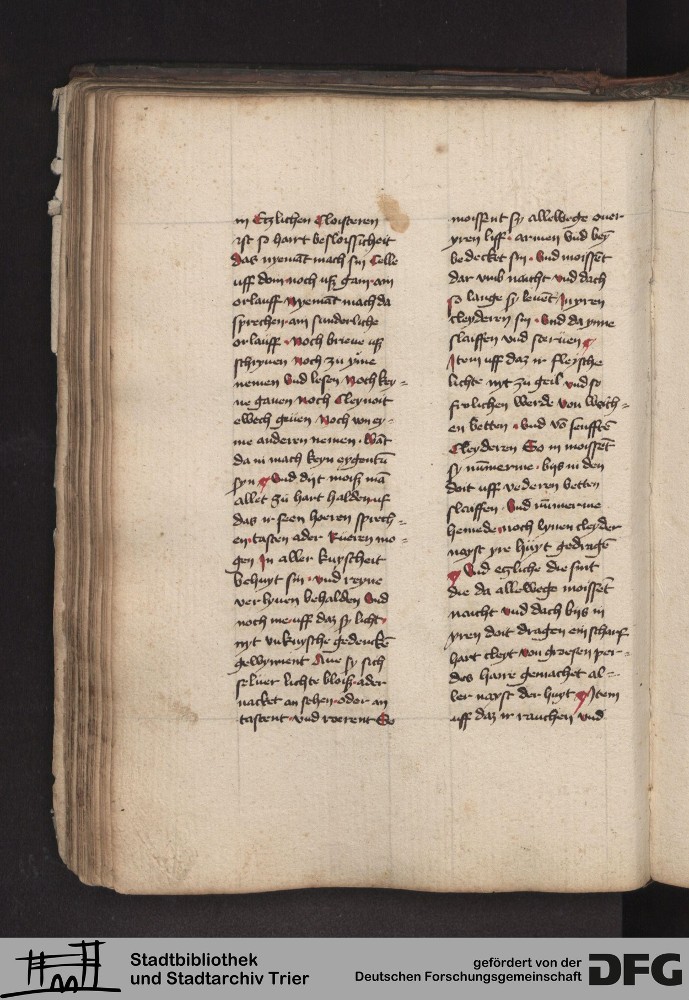 in Etzlichen Cloisteren
ist so harrt besloissēheit
das nyemāt mach sin Celle
uff doin noch usz gain am
orlauff Nyemāt mach da
sprechen am sunderliche
orlauff Noch brieve usz
schryven Noch zu yme
nemen Und lesen Noch key=
ne gaven Noch Cleynoit
ewech geven Noch von ey=
me anderen nemen Wāt
da in mach keyn eygentū
syn Und diit moisz mā
allet zu hart halden uf
das ir seen hoeren sprech=
en tasten ader Rueren mo=
gen In aller kuyscheit
behuyt sin und reyne
verlyven behalden Und
noch me uff daz sy licht
nyt unkuysche gedenckē
gewynnent Ane sy sich
selver lichte bloisz ader
nacket an sehen oder an
tastent und roerent So
moissent sy allewege over
yren liff armen Und bey
bedecket sin Und moissēt
dar umb naicht und dach
so lange sy levēt In yren
cleyderen sin Und da ynne
slaiffen und sterven
Item uff daz ir fleysche
lichte nyt zu geil und so
frolichen werde von weich=
en betten und vō senfftē
Cleyderen So in moissēt
sy nūmerme biis in den
doit uff vederen betten
slaiffen Und nūmerme
hemede noch lynen cleyder
nayst yre hüyt gedragē
Und etzliche die sint
die da allewege moissēt
naicht und dach biis in
yren doit dragen ein scharf
hart cleyt von groesen per=
des haire gemachet al=
ler nayst der huyt Item
uff daz ir rauchen und
Stadtbibliothek
und Stadtarchiv Trier
gefördert von der
Deutschen Forschungsgemeinschaft
DFG